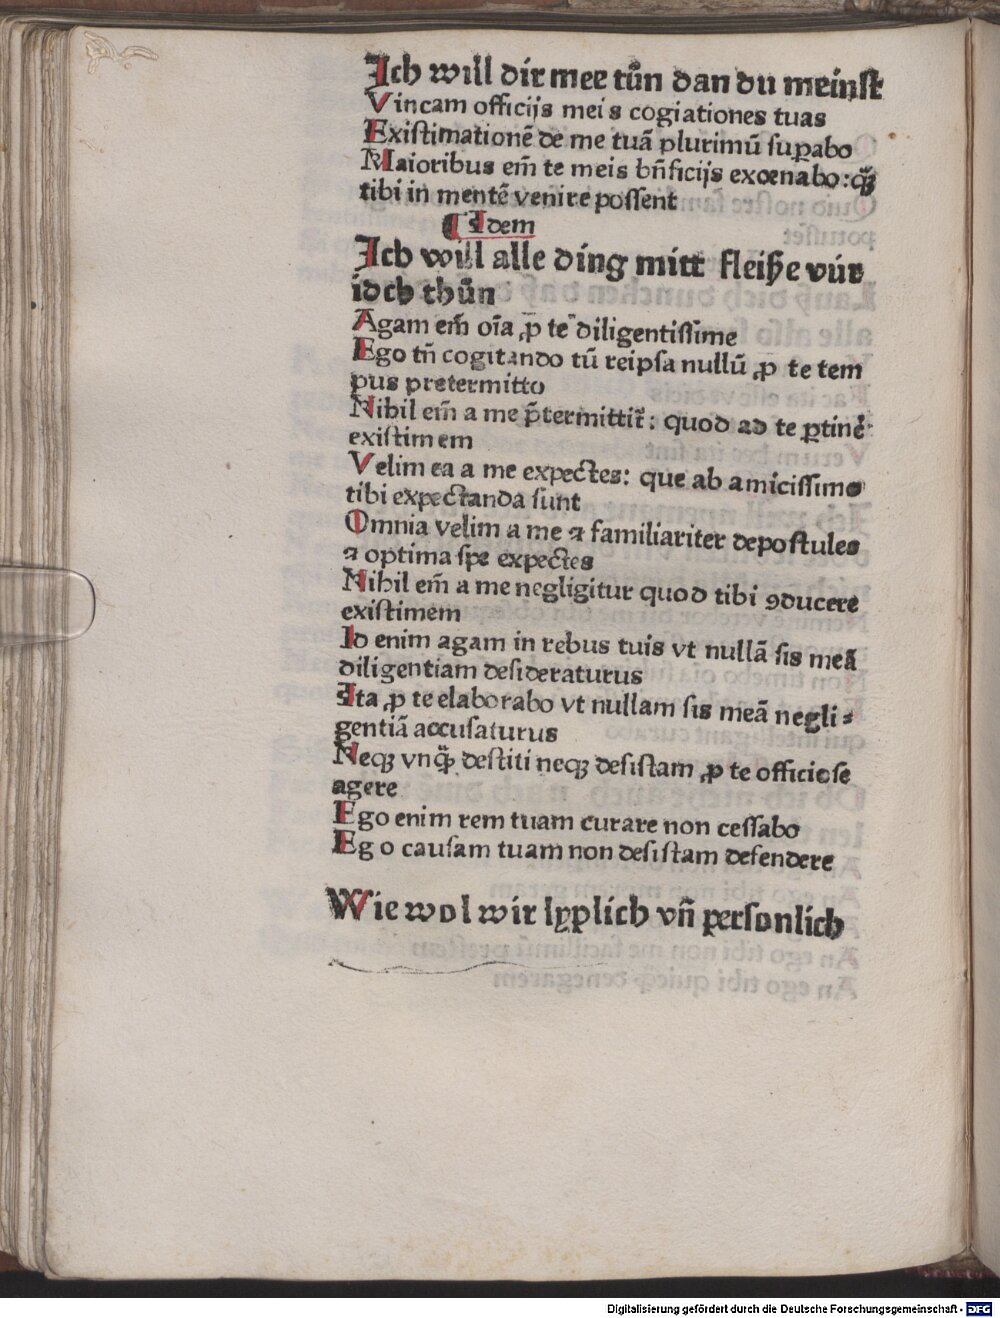 Ich will dir mee tůn dan du meinst
Vincam officijs meis cogiationes tuas
Existimationẽ de me tuã plurimũ suꝑabo
Maioribus em̃ te meis bñficijs exoenabo: q̃ꝫ
tibi in mentẽ venire possent
¶ Idem
Ich will alle ding mitt fleiße vúr
idch thůn
Agam em̃ oĩa ꝓ te diligentissime
Ego tñ cogitando tũ reipsa nullũ ꝓ te tem
pus pretermitto
Nihil em̃ a me p̃termittit̃: quod ad te ꝑtinẽ
existimem
Velim ea a me expectes: que ab amicissimo
tibi expectanda sunt
Omnia velim a me ⁊ familiariter depostules
⁊ optima spe expectes
Nihil em̃ a me negligitur quod tibi ꝯducere
existimem
Id enim agam in rebus tuis vt nullã sis meã
diligentiam desideraturus
Ita ꝓ te elaborabo vt nullam sis meã negli⸗
gentiã accusaturus
Neqꝫ vnq̃ꝫ destiti neqꝫ desistam ꝓ te officiose
agere
Ego enim rem tuam curare non cessabo
Ego causam tuam non desistam defendere
Wie wol wir lyplich vñ personlich
Digitalisierung gefördert durch die Deutsche Forschungsgemeinschaft - DFG